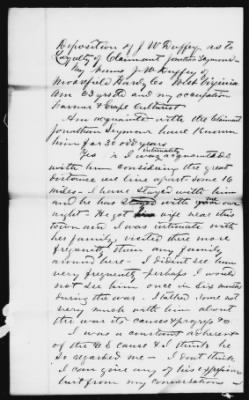 Deposition of J W Duffey as to
Loyalty of Claimant Jonathan Seymour
My Name J. W. Duffey of
Moorefield Hardy Co West Virginia
Am 53 yrs old and my occupation
Farmer &
Am acquainted with the Claimant
Jonathan Seymour have Known
him for 30 odd years
Yes I was intimately acquainted
with him Considering the great
distance we live apart some 16
miles - I have stayed with him
and he has stayed with me over
night - He got his wife near this
town and I was intimate with
her family, visited there more
frequently than any family
around here - I didn't see him
very frequently perhaps I would
not see him once in six months
during the war. I talked some not
very much with him about
the war its causes & progress &c
I was a constant adherent
of the cause & I think he
so regarded me - I don't think
I can give any of his expressions
but from my conversations -